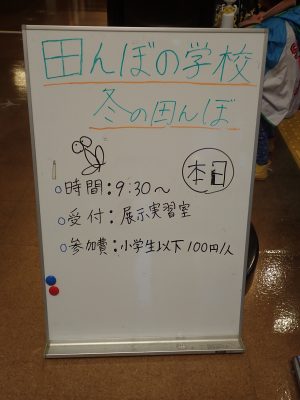 田んぼの学校
冬の田んぼ
本日
○時間：9:30～
○受付：展示実習室
○参加費：小学生以下100円/人